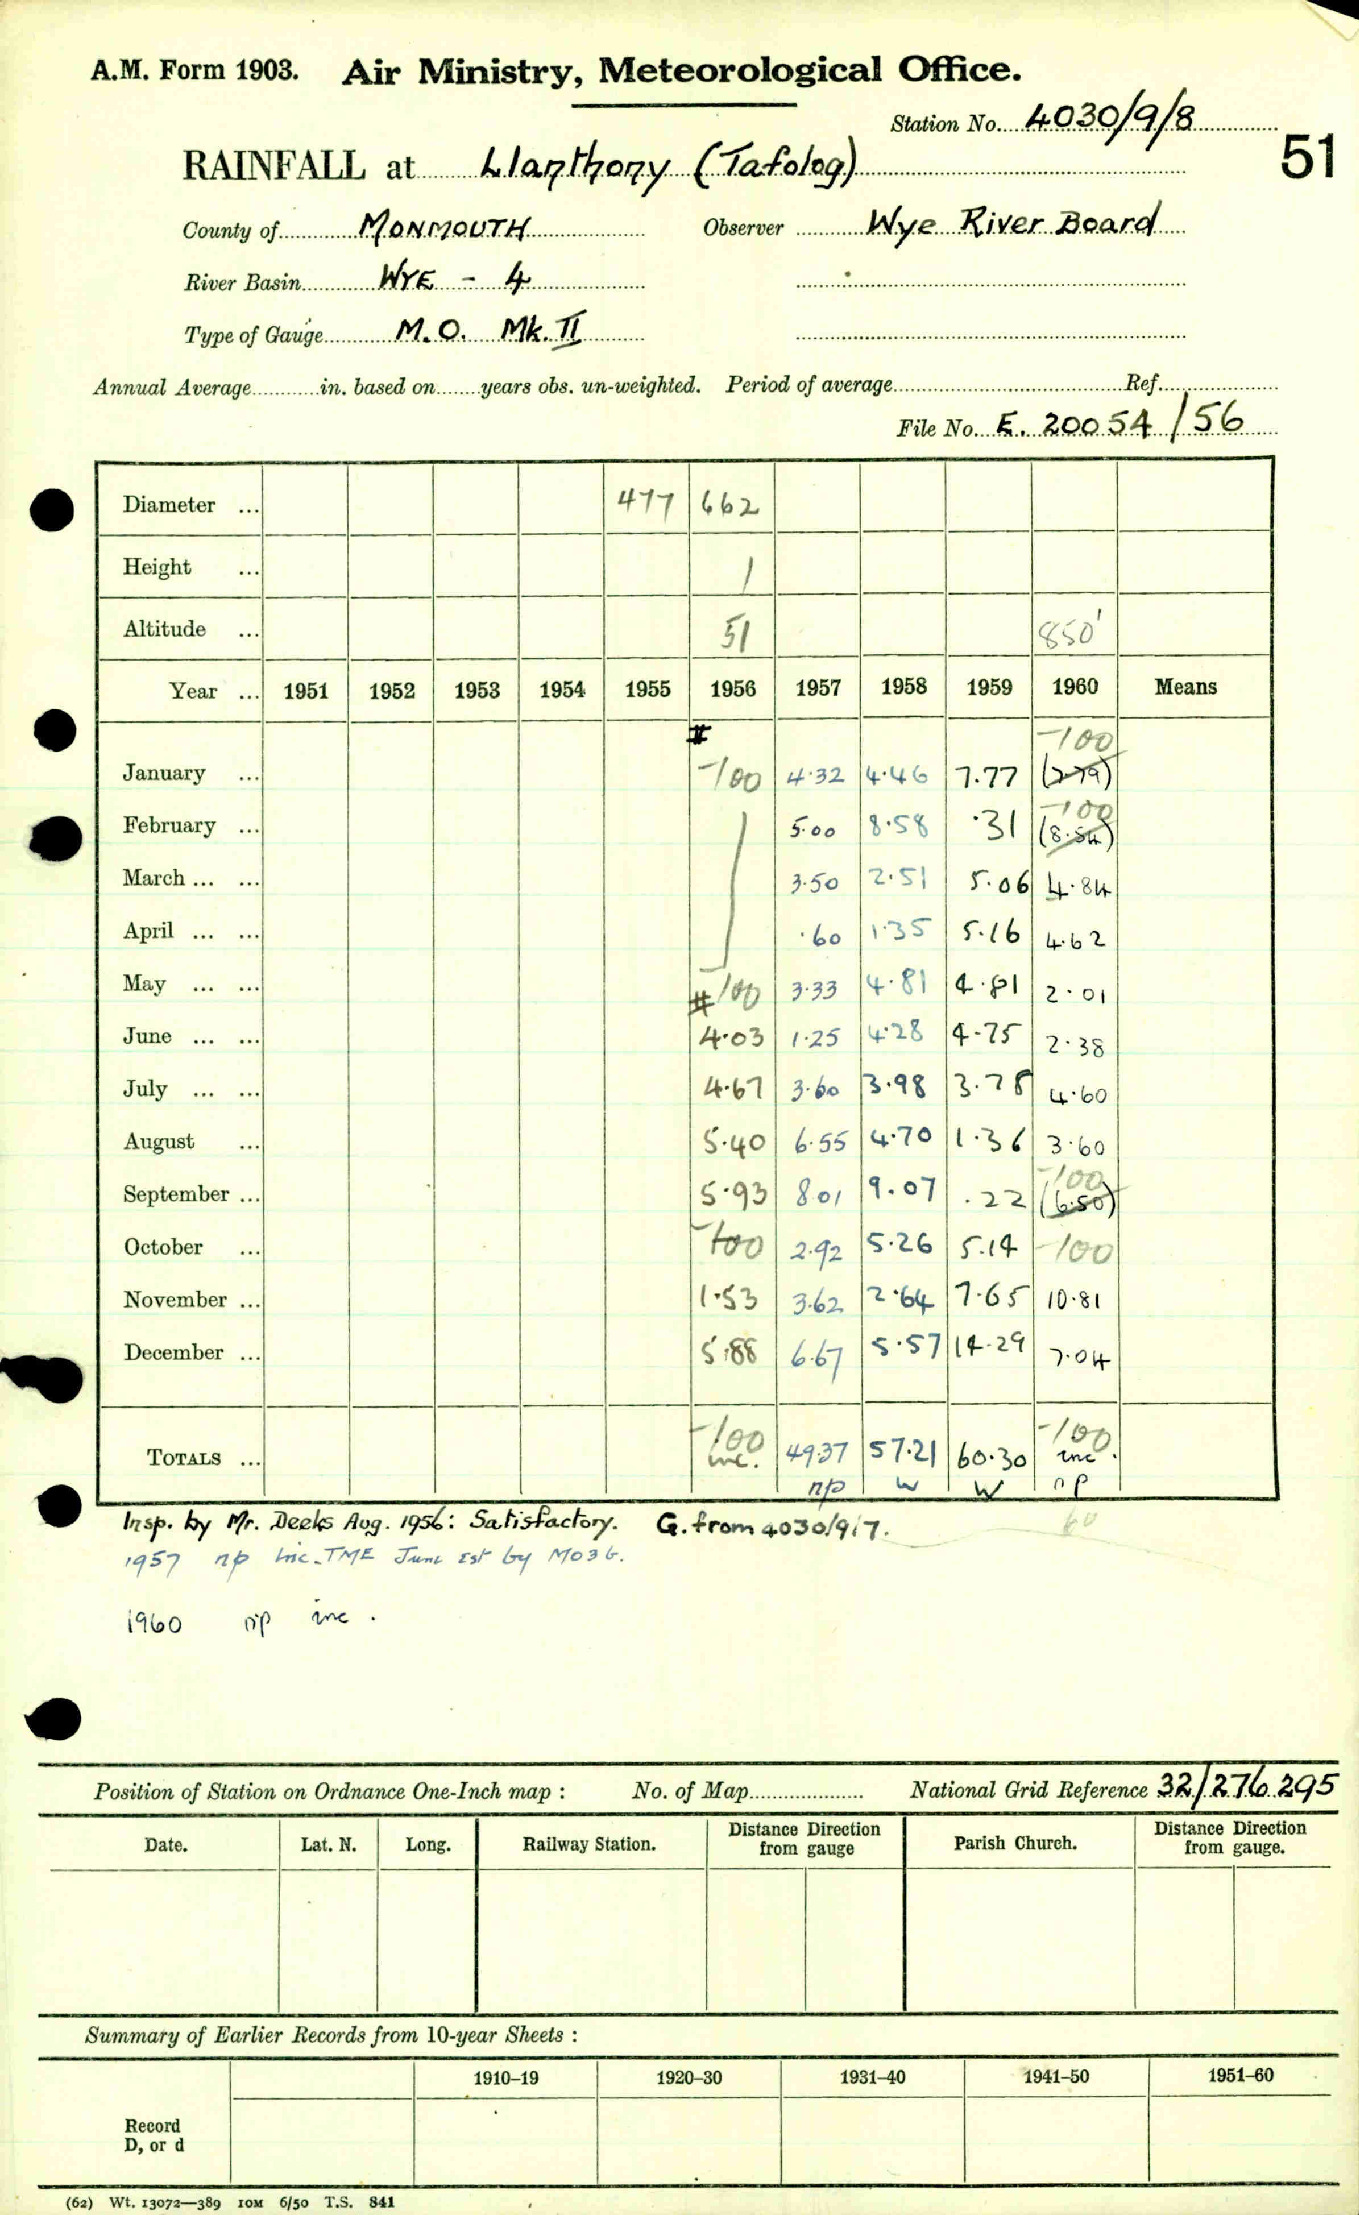 A.M. Form 1903. Air Ministry, Meteorological Office.
Station No. 4030/9/8
51
RAINFALL at Llanthony (Tafolog)
County of MONMOUTH Observer Wye River Board
River Basin WYE - 4
Type of Gauge M.O. Mk. II
Annual Average in. based on years obs. un-weighted. Period of average Ref.
File No. E. 20054/56
Diameter ... 477 662
Height ... 1
Altitude ... 51 850'
Year ... 1951 1952 1953 1954 1955 1956 1957 1958 1959 1960 Means
# -100
January ... -100 4.32 4.46 7.77 (7.79)
-100
February ... 5.00 8.58 .31 (8.54)
March ... ... 3.50 2.51 5.06 4.84
April ... ... .60 1.35 5.16 4.62
May ... ... # -100 3.33 4.81 4.81 2.01
June ... ... 4.03 1.25 4.28 4.75 2.38
July ... ... 4.67 3.60 3.98 3.78 4.60
August ... 5.40 6.55 4.70 1.36 3.60
-100
September ... 5.93 8.01 9.07 .22 (6.50)
October ... -100 2.92 5.26 5.14 -100
November ... 1.53 3.62 2.64 7.65 10.81
December ... 5.88 6.67 5.57 14.29 7.04
-100 -100
TOTALS ... inc. 49.37 57.21 60.30 inc.
np w w np
Insp. by Mr. Deeks Aug. 1956: Satisfactory. G. from 4030/9/7. 60
1957 np inc. TME June Est by MO3G.
1960 np inc.
Position of Station on Ordnance One-Inch map : No. of Map National Grid Reference 32/276.295
Date. Lat. N. Long. Railway Station. Distance from Direction gauge Parish Church. Distance from Direction gauge.
Summary of Earlier Records from 10-year Sheets :
1910–19 1920–30 1931–40 1941–50 1951–60
Record
D, or d
(62) Wt. 13072—389 10M 6/50 T.S. 841